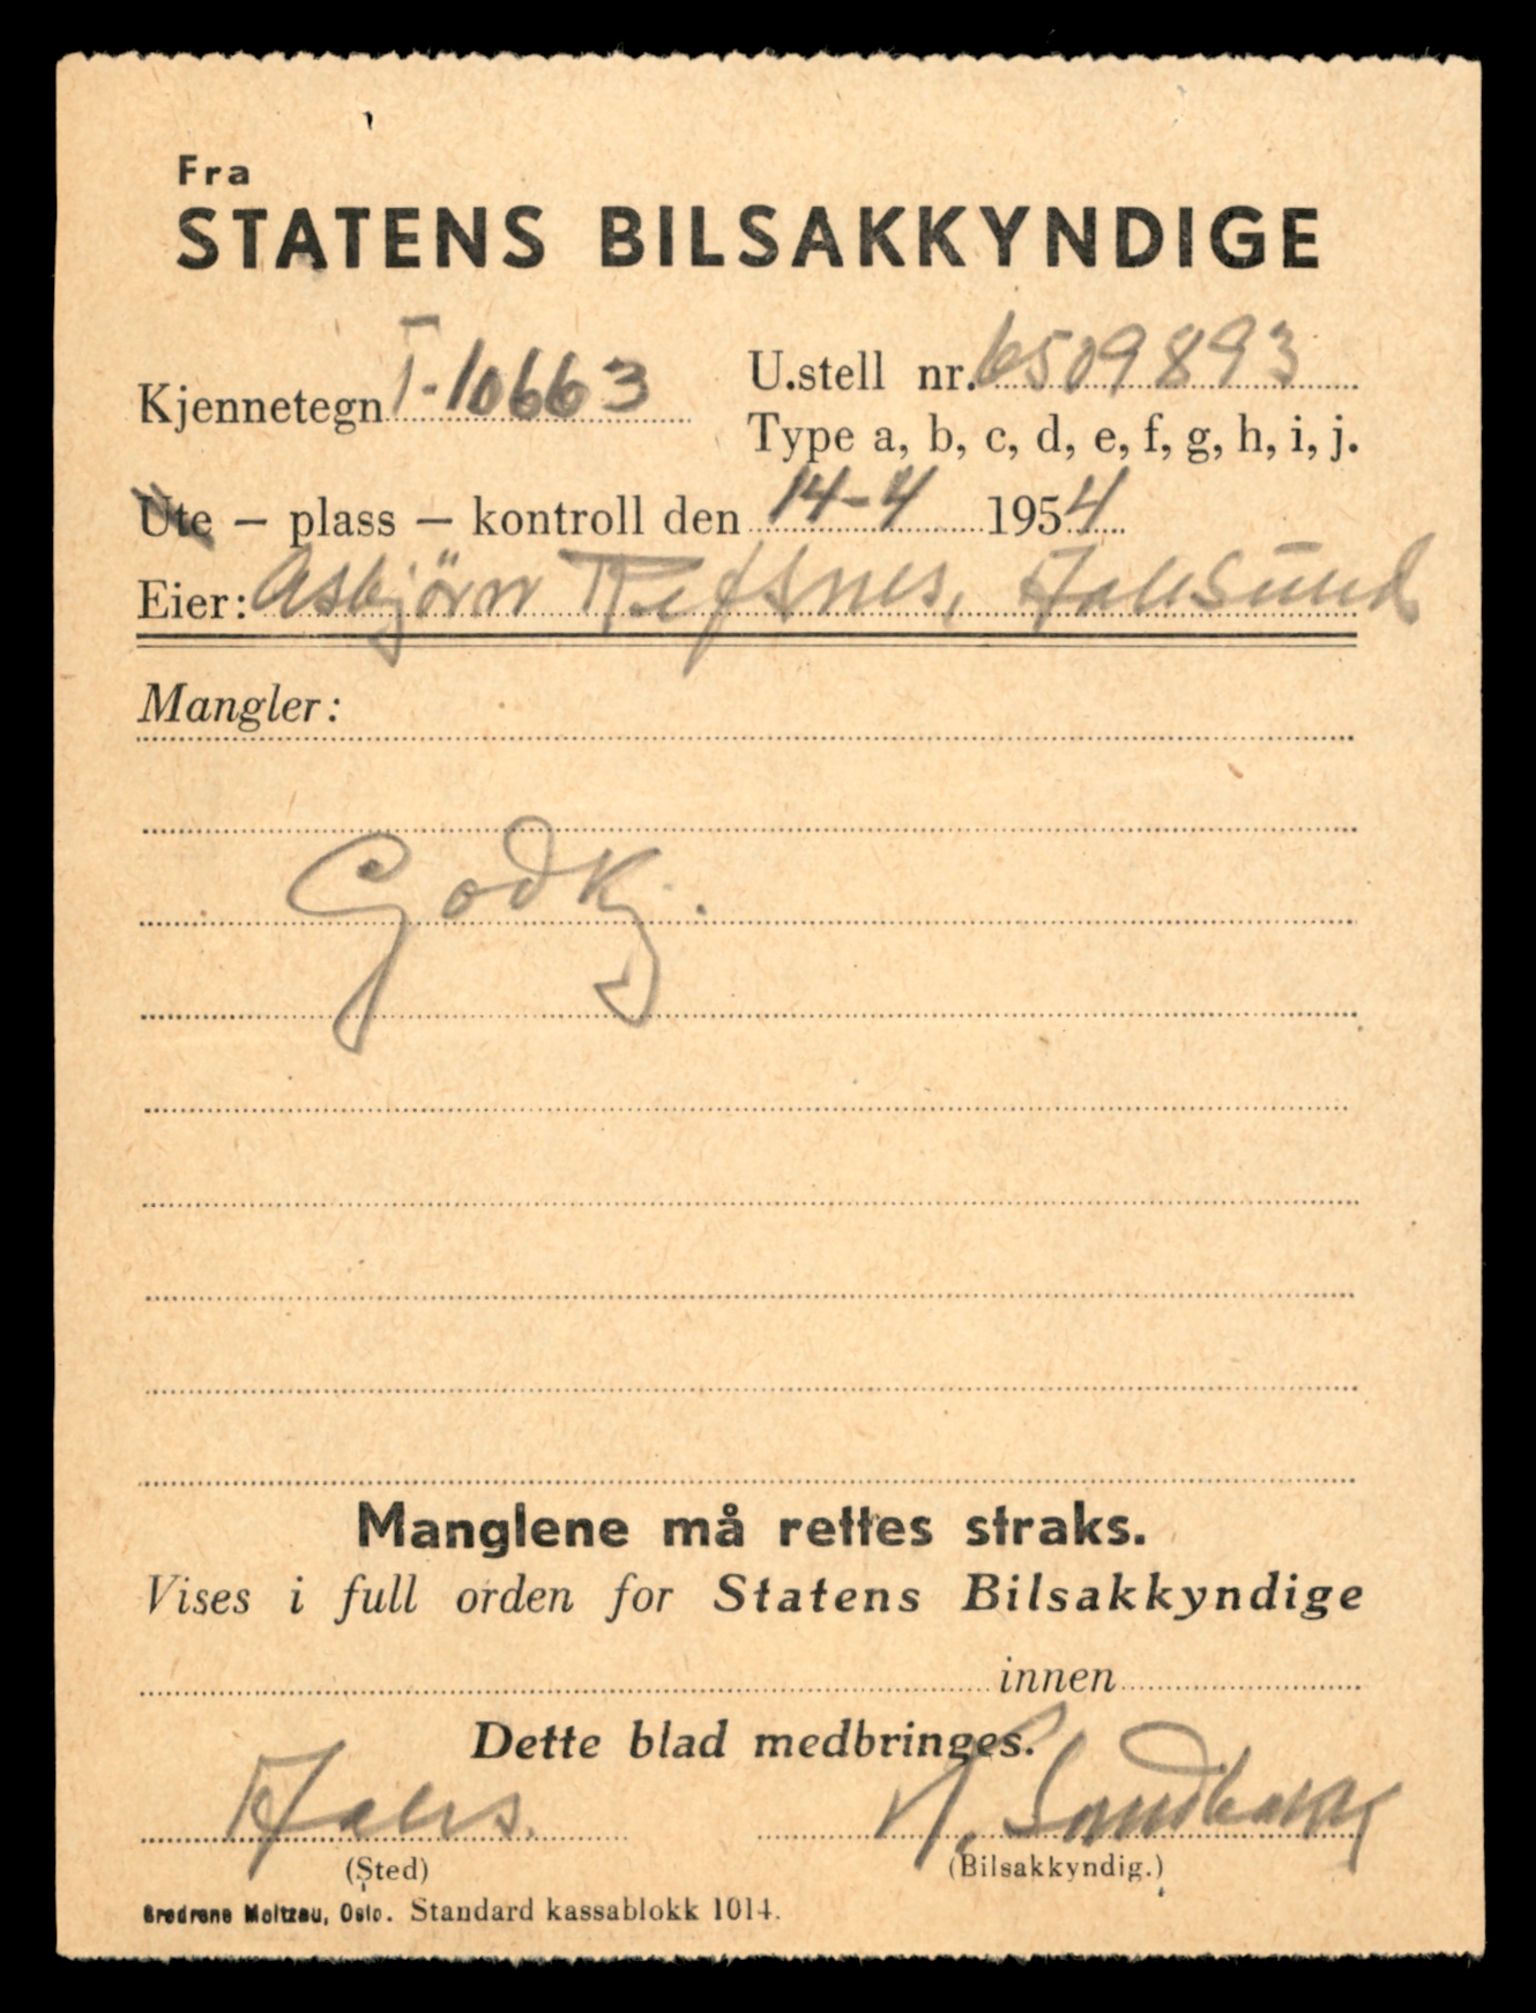 Fra
STATENS BILSAKKYNDIGE
Kjennetegn T-10663
U.stell nr. 6509893
Type a, b, c, d, e, f, g, h, i, j.
Ute – plass – kontroll den 14-4 1954
Eier: Asbjörn Refsnes, Aalesund
Mangler:
Godkj.
Manglene må rettes straks.
Vises i full orden for Statens Bilsakkyndige
innen
Dette blad medbringes.
Aales. N. Sandberg
(Sted) (Bilsakkyndig.)
Brødrene Moltzau, Oslo. Standard kassablokk 1014.